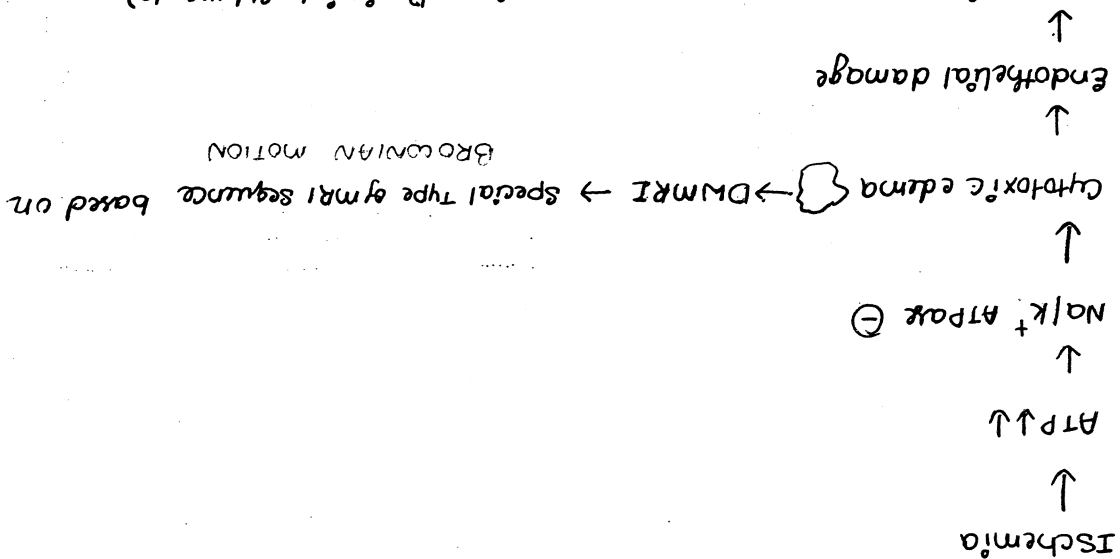 Ischemia
↓
ATP↓↓
↓
Na/K+ ATPase ⊖
↓
Cytotoxic edema → DWMRI → Special Type of MRI sequence based on
BROWNIAN MOTION
↓
Endothelial damage
↓